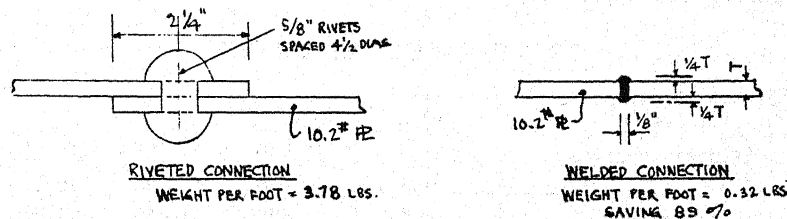 2 1/4"
5/8" RIVETS
SPACED 4 1/2 DIAS
10.2# PL
RIVETED CONNECTION
WEIGHT PER FOOT = 3.78 LBS.
1/4 T
T
10.2# PL
1/8"
1/4 T
WELDED CONNECTION
WEIGHT PER FOOT = 0.32 LBS
SAVING 89 %